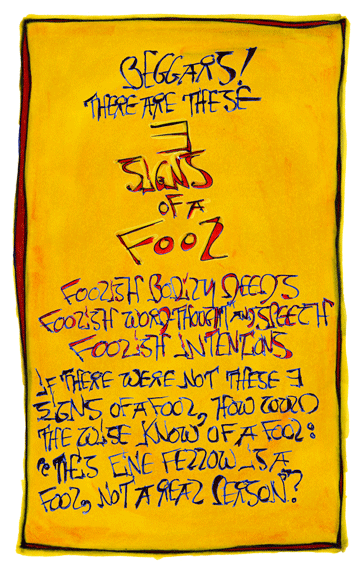 BEGGARS!
THERE ARE THESE
3
SIGNS
OF A
FOOL
FOOLISH BODILY DEEDS
FOOLISH WORD-THOUGHT AND SPEECH
FOOLISH INTENTIONS
IF THERE WERE NOT THESE 3
SIGNS OF A FOOL, HOW WOULD
THE WISE KNOW OF A FOOL:
"THIS FINE FELLOW IS A
FOOL, NOT A REAL PERSON"?